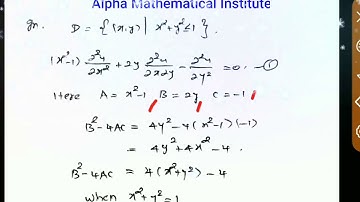 Alpha Mathematical Institute
Gn. D = {(x,y) | x²+y²≤1}.
(x²-1) ∂²u/∂x² + 2y ∂²u/∂x∂y - ∂²u/∂y² = 0. —①
Here A = x²-1, B = 2y, C = -1
B²-4AC = 4y²-4(x²-1)(-1)
= 4y²+4x²-4.
B²-4AC = 4(x²+y²)-4
When x²+y²=1